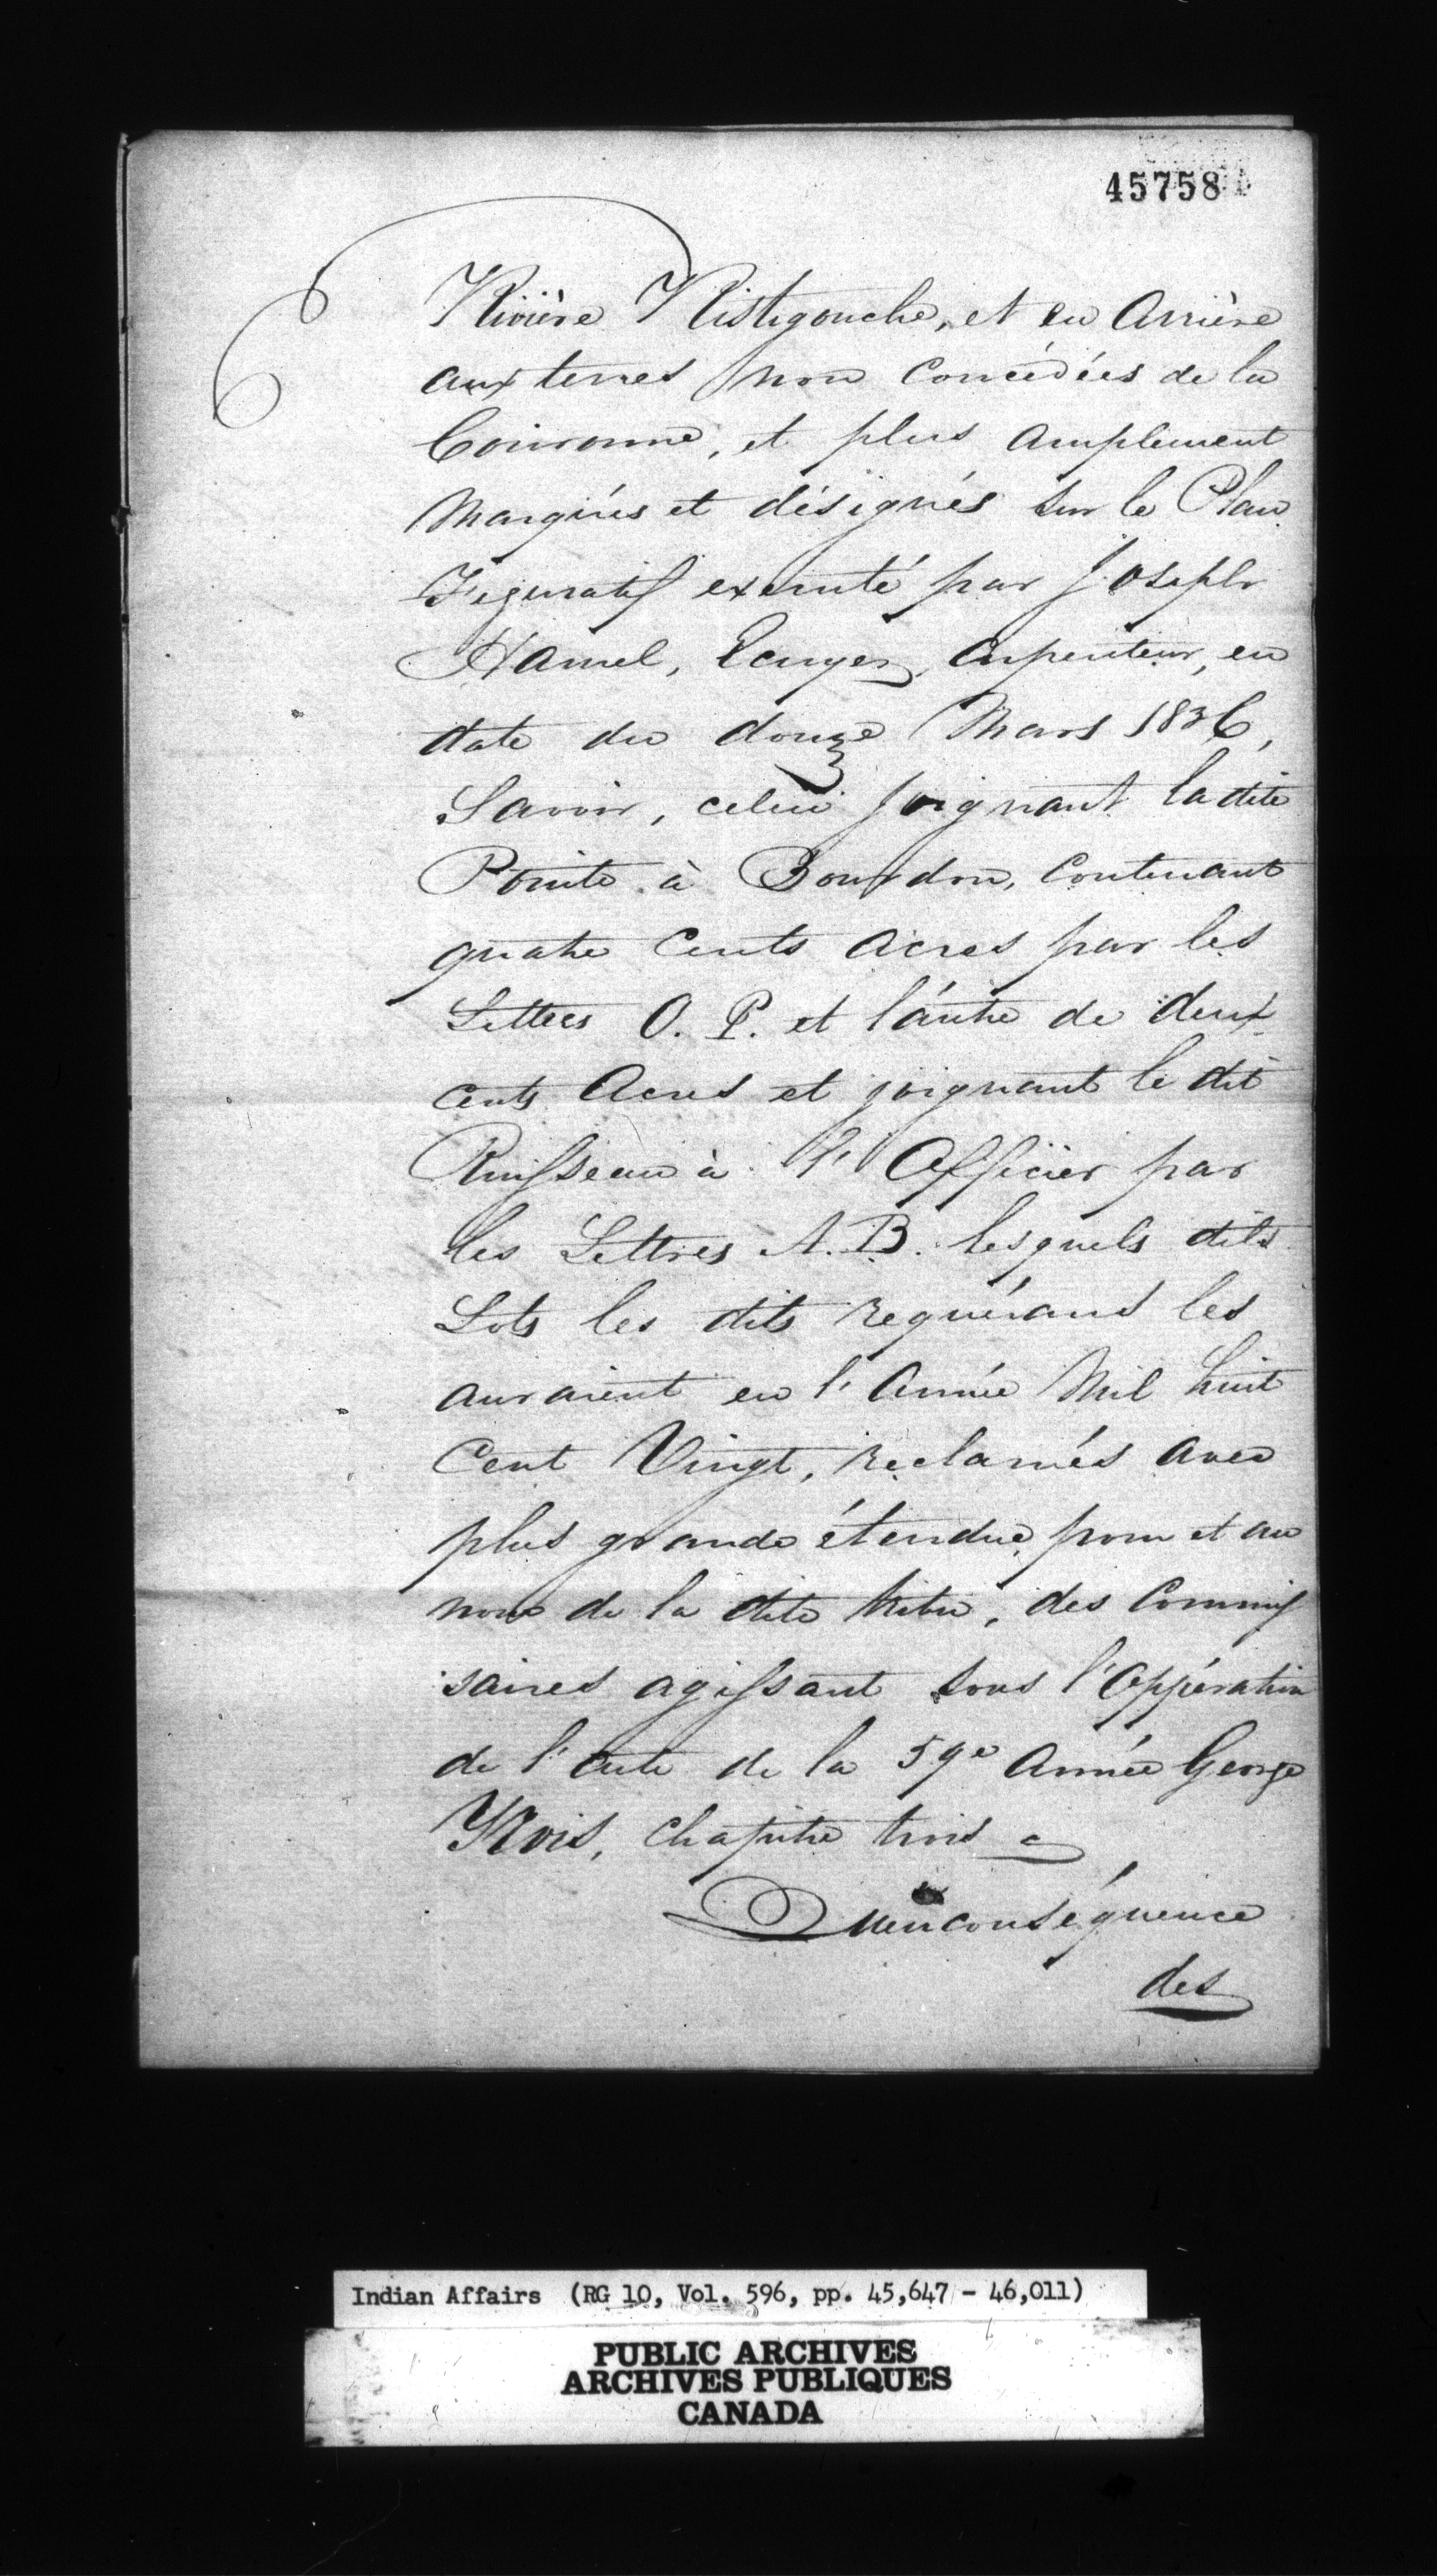 45758
Rivière Ristigouche, et en Arrière
aux terres non concédées de la
Couronne, et plus amplement
Marqués et désignés sur le Plan
Figuratif executé par Joseph
Hamel, Ecuyer, Arpenteur, en
date du douze Mars 1836,
Savoir, celui joignant la dite
Pointe à Bourdon, contenant
quatre Cents Acres par les
Lettres O. P. et l'autre de deux
cents Acres et joignant le dit
Ruisseau à l'Officier par
les Lettres A. B. lesquels dits
Lots les dits requérans les
auraient en l'Année Mil huit
Cent Vingt, reclamés avec
plus grande étendue, pour et au
nom de la dite tribu, des Commis
saires agissant sous l'Opération
de l'acte de la 59e Année George
Trois, Chapitre trois
Qu'en conséquence
des
Indian Affairs (RG 10, Vol. 596, pp. 45,647 - 46,011)
PUBLIC ARCHIVES
ARCHIVES PUBLIQUES
CANADA